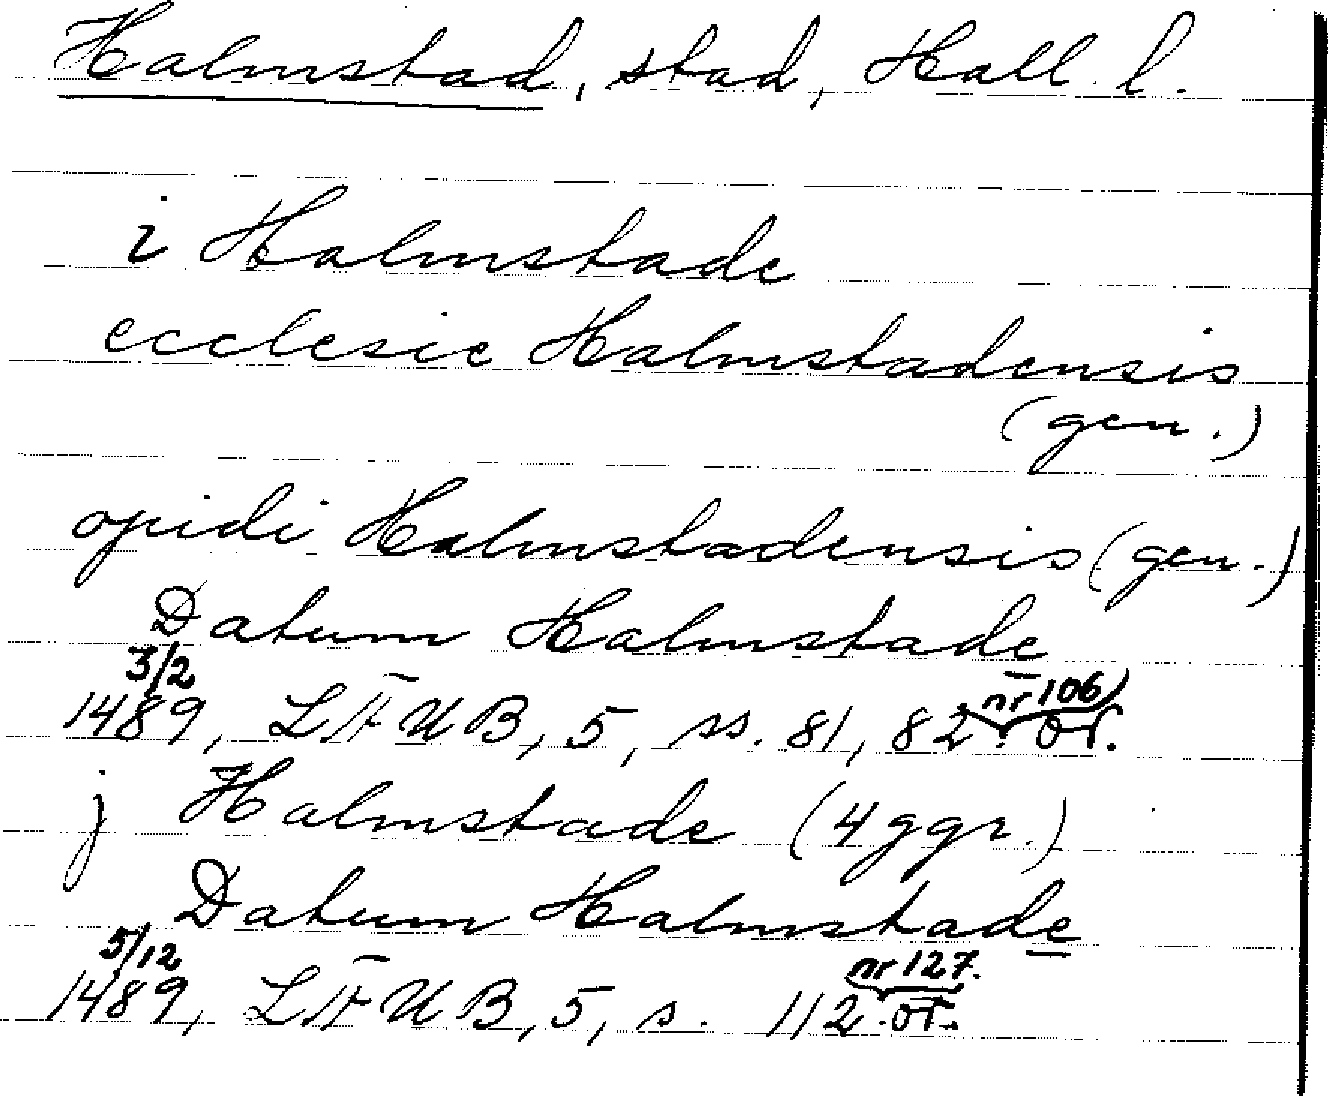 Halmstad, stad, Hall. l.
i Halmstade
ecclesie Halmstadensis
(gen.)
opidi Halmstadensis (gen.)
Datum Halmstade
3/2
1489, LÄUB, 5, ss. 81, 82. nr 106 or.
j Halmstade (4 ggr.)
Datum Halmstade
5/12
1489, LÄUB, 5, s. 112. nr 127. or.